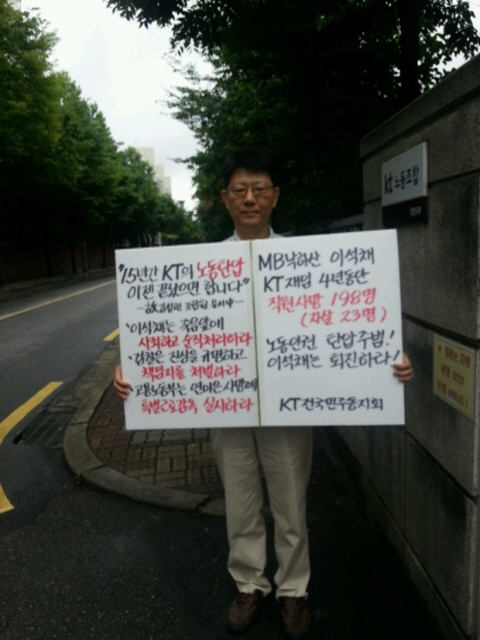 kt 노동조합
"15년간 KT의 노동탄압
이젠 끝났으면 합니다"
조합원 유서中
·이석채는 죽음앞에
사죄하고 순직처리하라
·검찰은 진상을 규명하고
책임자를 처벌하라
·고용노동부는 연이은 사망에
특별근로감독 실시하라
MB낙하산 이석채
KT재임 4년동안
직원사망 198명
(자살 23명)
노동인권 탄압주범!
이석채는 퇴진하라!
KT전국민주동지회